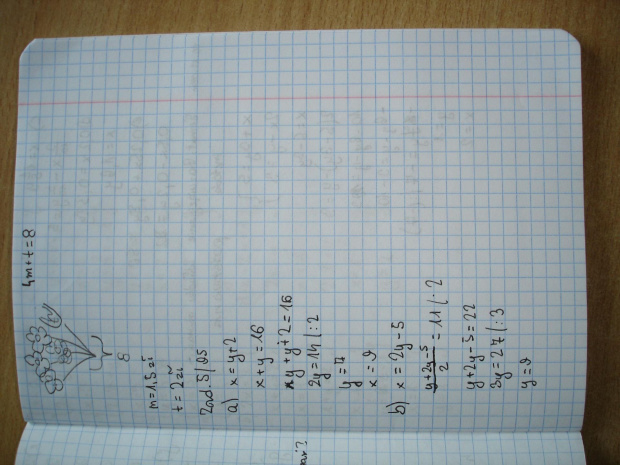 4m+t=8
8
m=1,5 zł
t=2 zł
Zad. 5/95
a) x=y+2
x+y=16
y+y+2=16
2y=14/:2
y=7
x=9
b) x=2y-5
y+2y-5/2=11/·2
y+2y-5=22
3y=27/:3
y=9